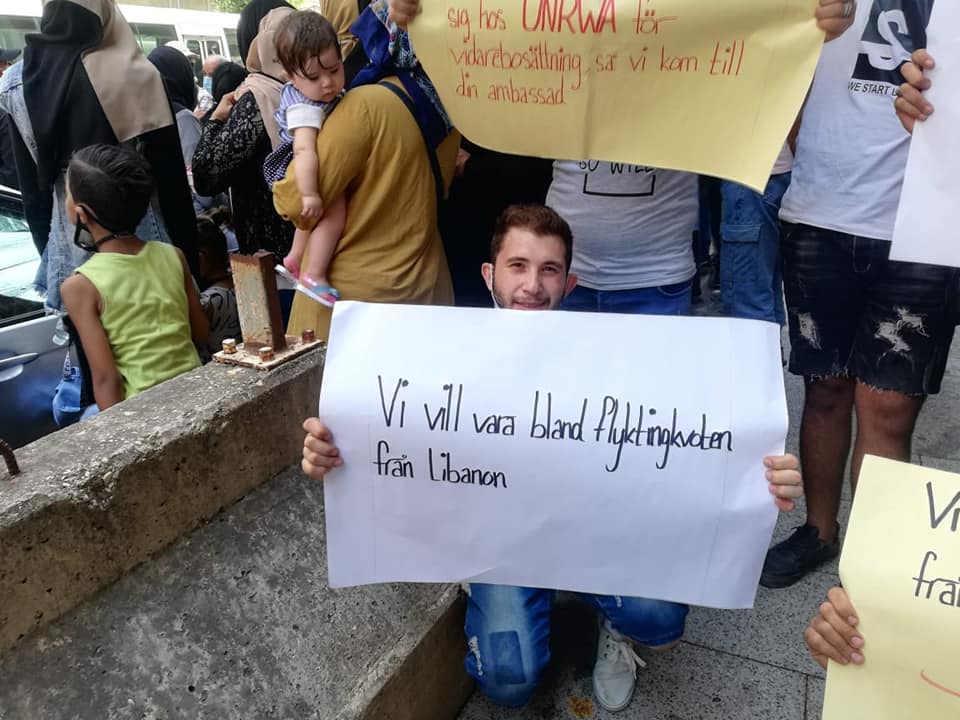 sig hos UNRWA för
vidarebosättning, så vi kom till
din ambassad
WE START
Vi vill vara bland flyktingkvoten
från Libanon
Vi
från